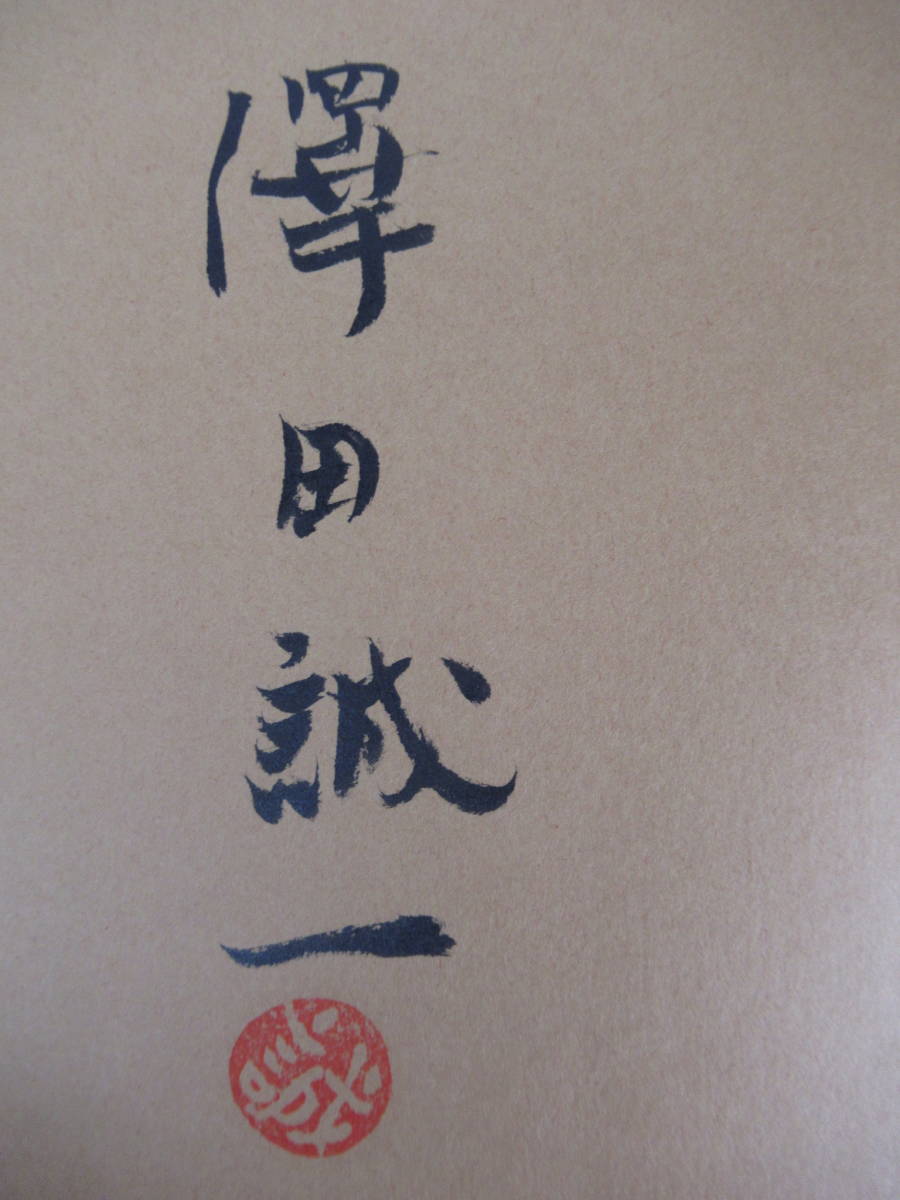 澤田誠一